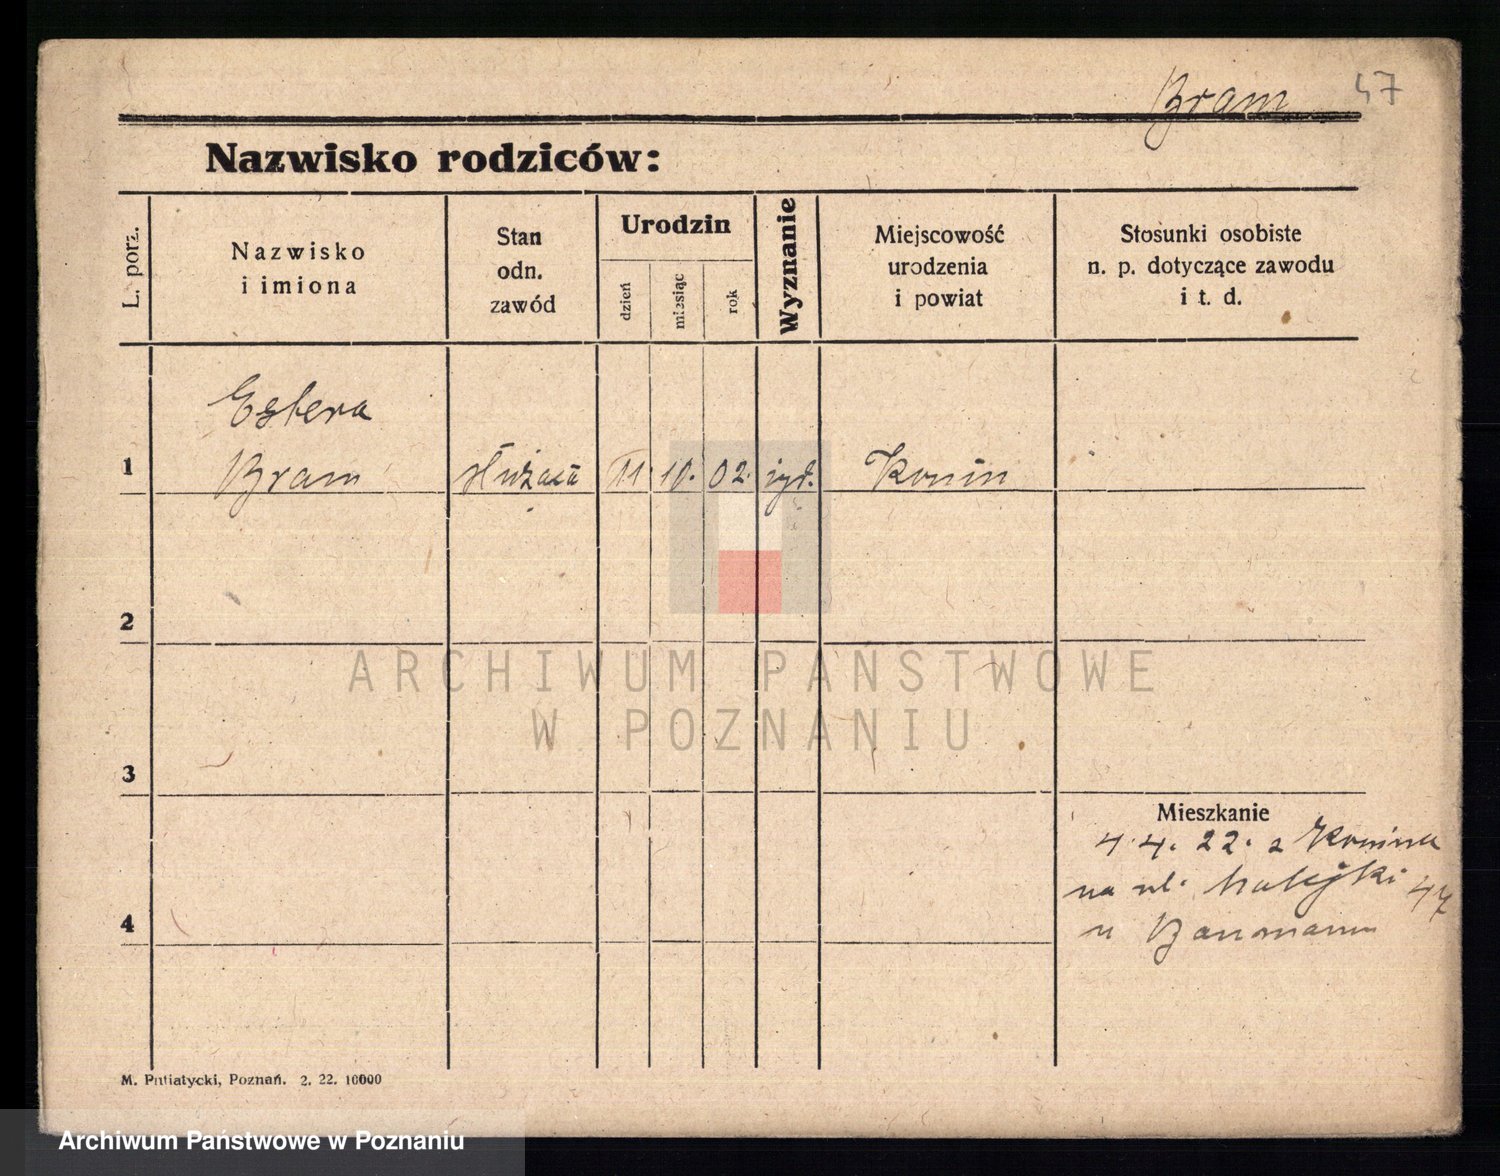 Bram 47
Nazwisko rodziców:
L. porz.
Nazwisko
i imiona
Stan
odn.
zawód
Urodzin
dzień
miesiąc
rok
Wyznanie
Miejscowość
urodzenia
i powiat
Stosunki osobiste
n. p. dotyczące zawodu
i t. d.
Estera
1 Bram służąca 11. 10. 02. Konin
2
ARCHIWUM PAŃSTWOWE
W POZNANIU
3
Mieszkanie
4. 4. 22. z Konina
na ul. 47
4
u
M. Putiatycki, Poznań. 2. 22. 10000
Archiwum Państwowe w Poznaniu